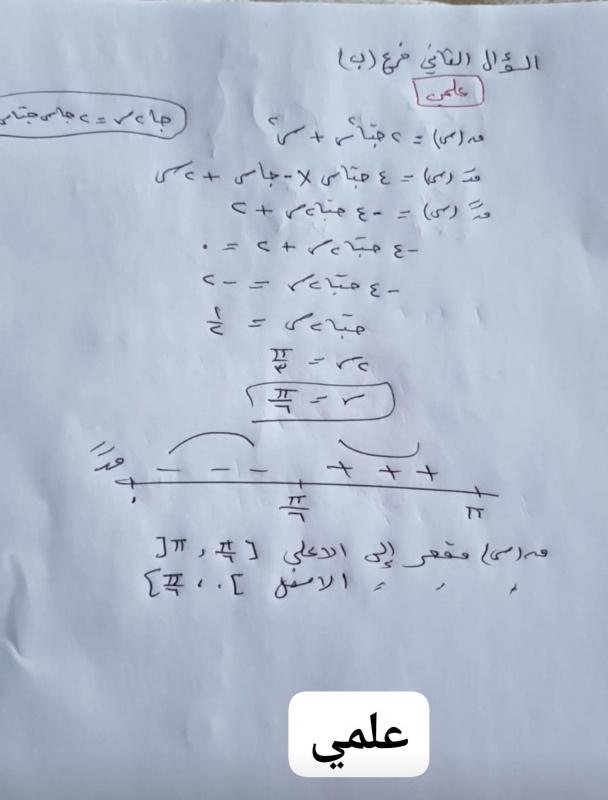 السؤال الثاني فرع (ب)
علمي
جا٢س = ٢جاس جتاس
ق(س) = ٢جتا²س + س²
قَ(س) = ٤ جتاس × -جاس + ٢س
قً(س) = -٤ جتا٢س + ٢
-٤ جتا٢س + ٢ = ٠
-٤ جتا٢س = -٢
جتا٢س = ١/٢
٢س = π/٣
س = π/٦
قً - - - + + +
٠ π/٦ π
ق(س) مقعر إلى الاعلى [π/٦ , π]
" " " الاسفل [٠ , π/٦]
علمي